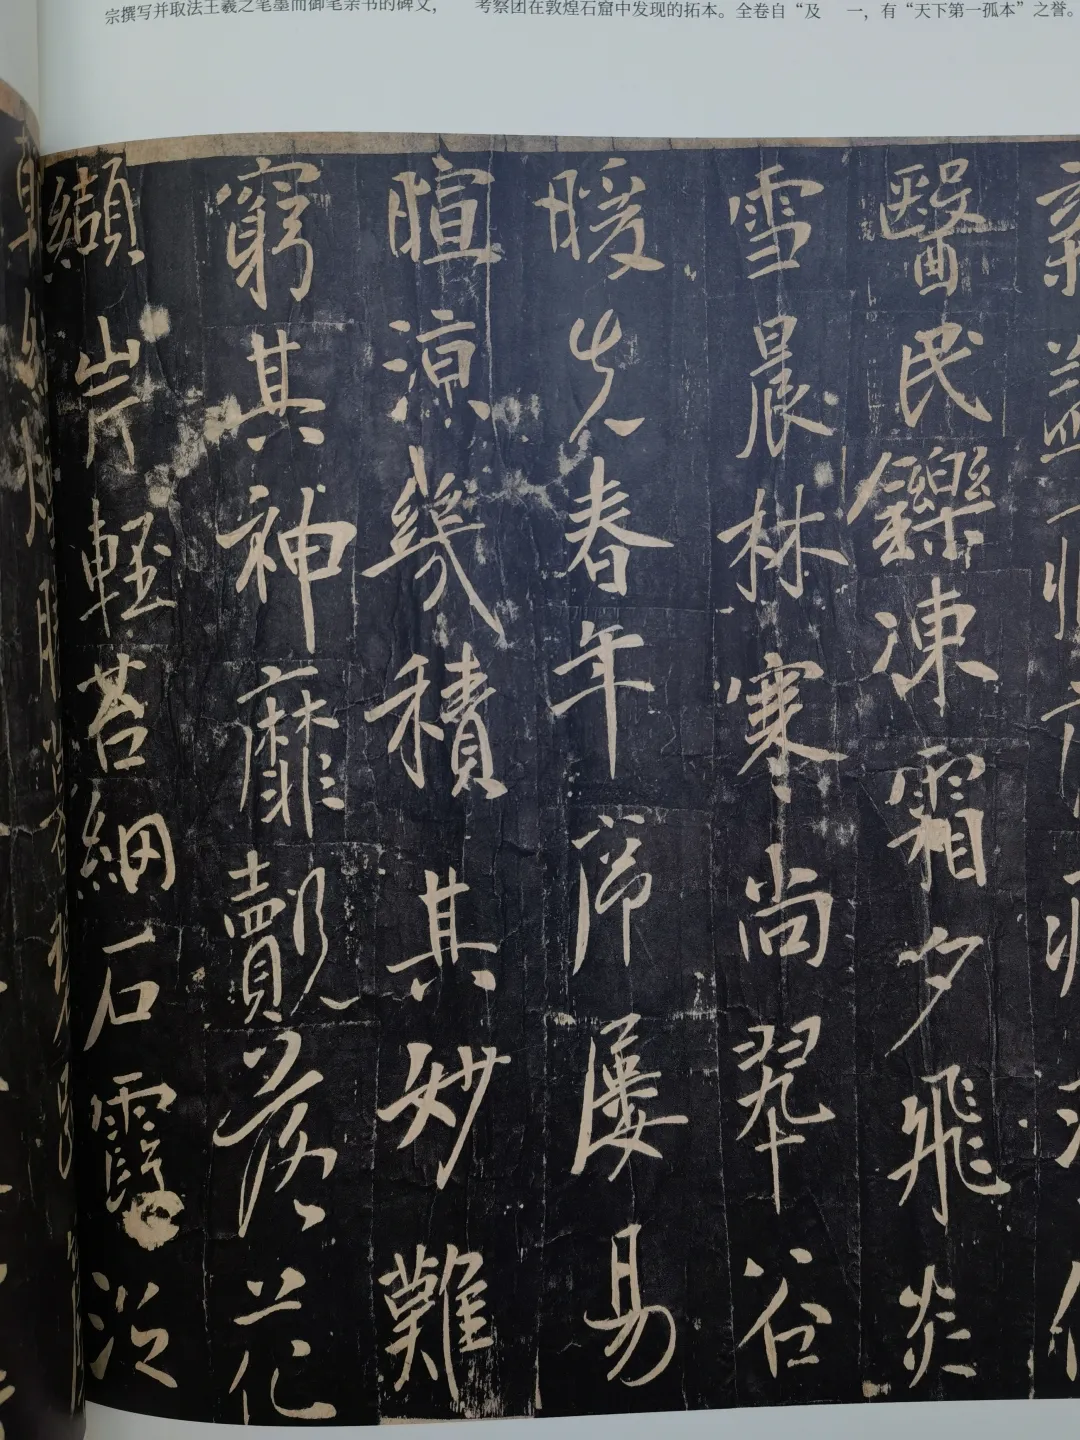 宗撰写并取法王羲之笔墨而御笔亲书的碑文，
考察团在敦煌石窟中发现的拓本。全卷自“及
一，有“天下第一孤本”之誉。
醫民鑠凍霜夕飛炎
雪晨林寒尚翠谷
暖先春年序屢易
暄涼幾積其妙難
窮其神靡賾落花
纈岸輕苔網石霞泛